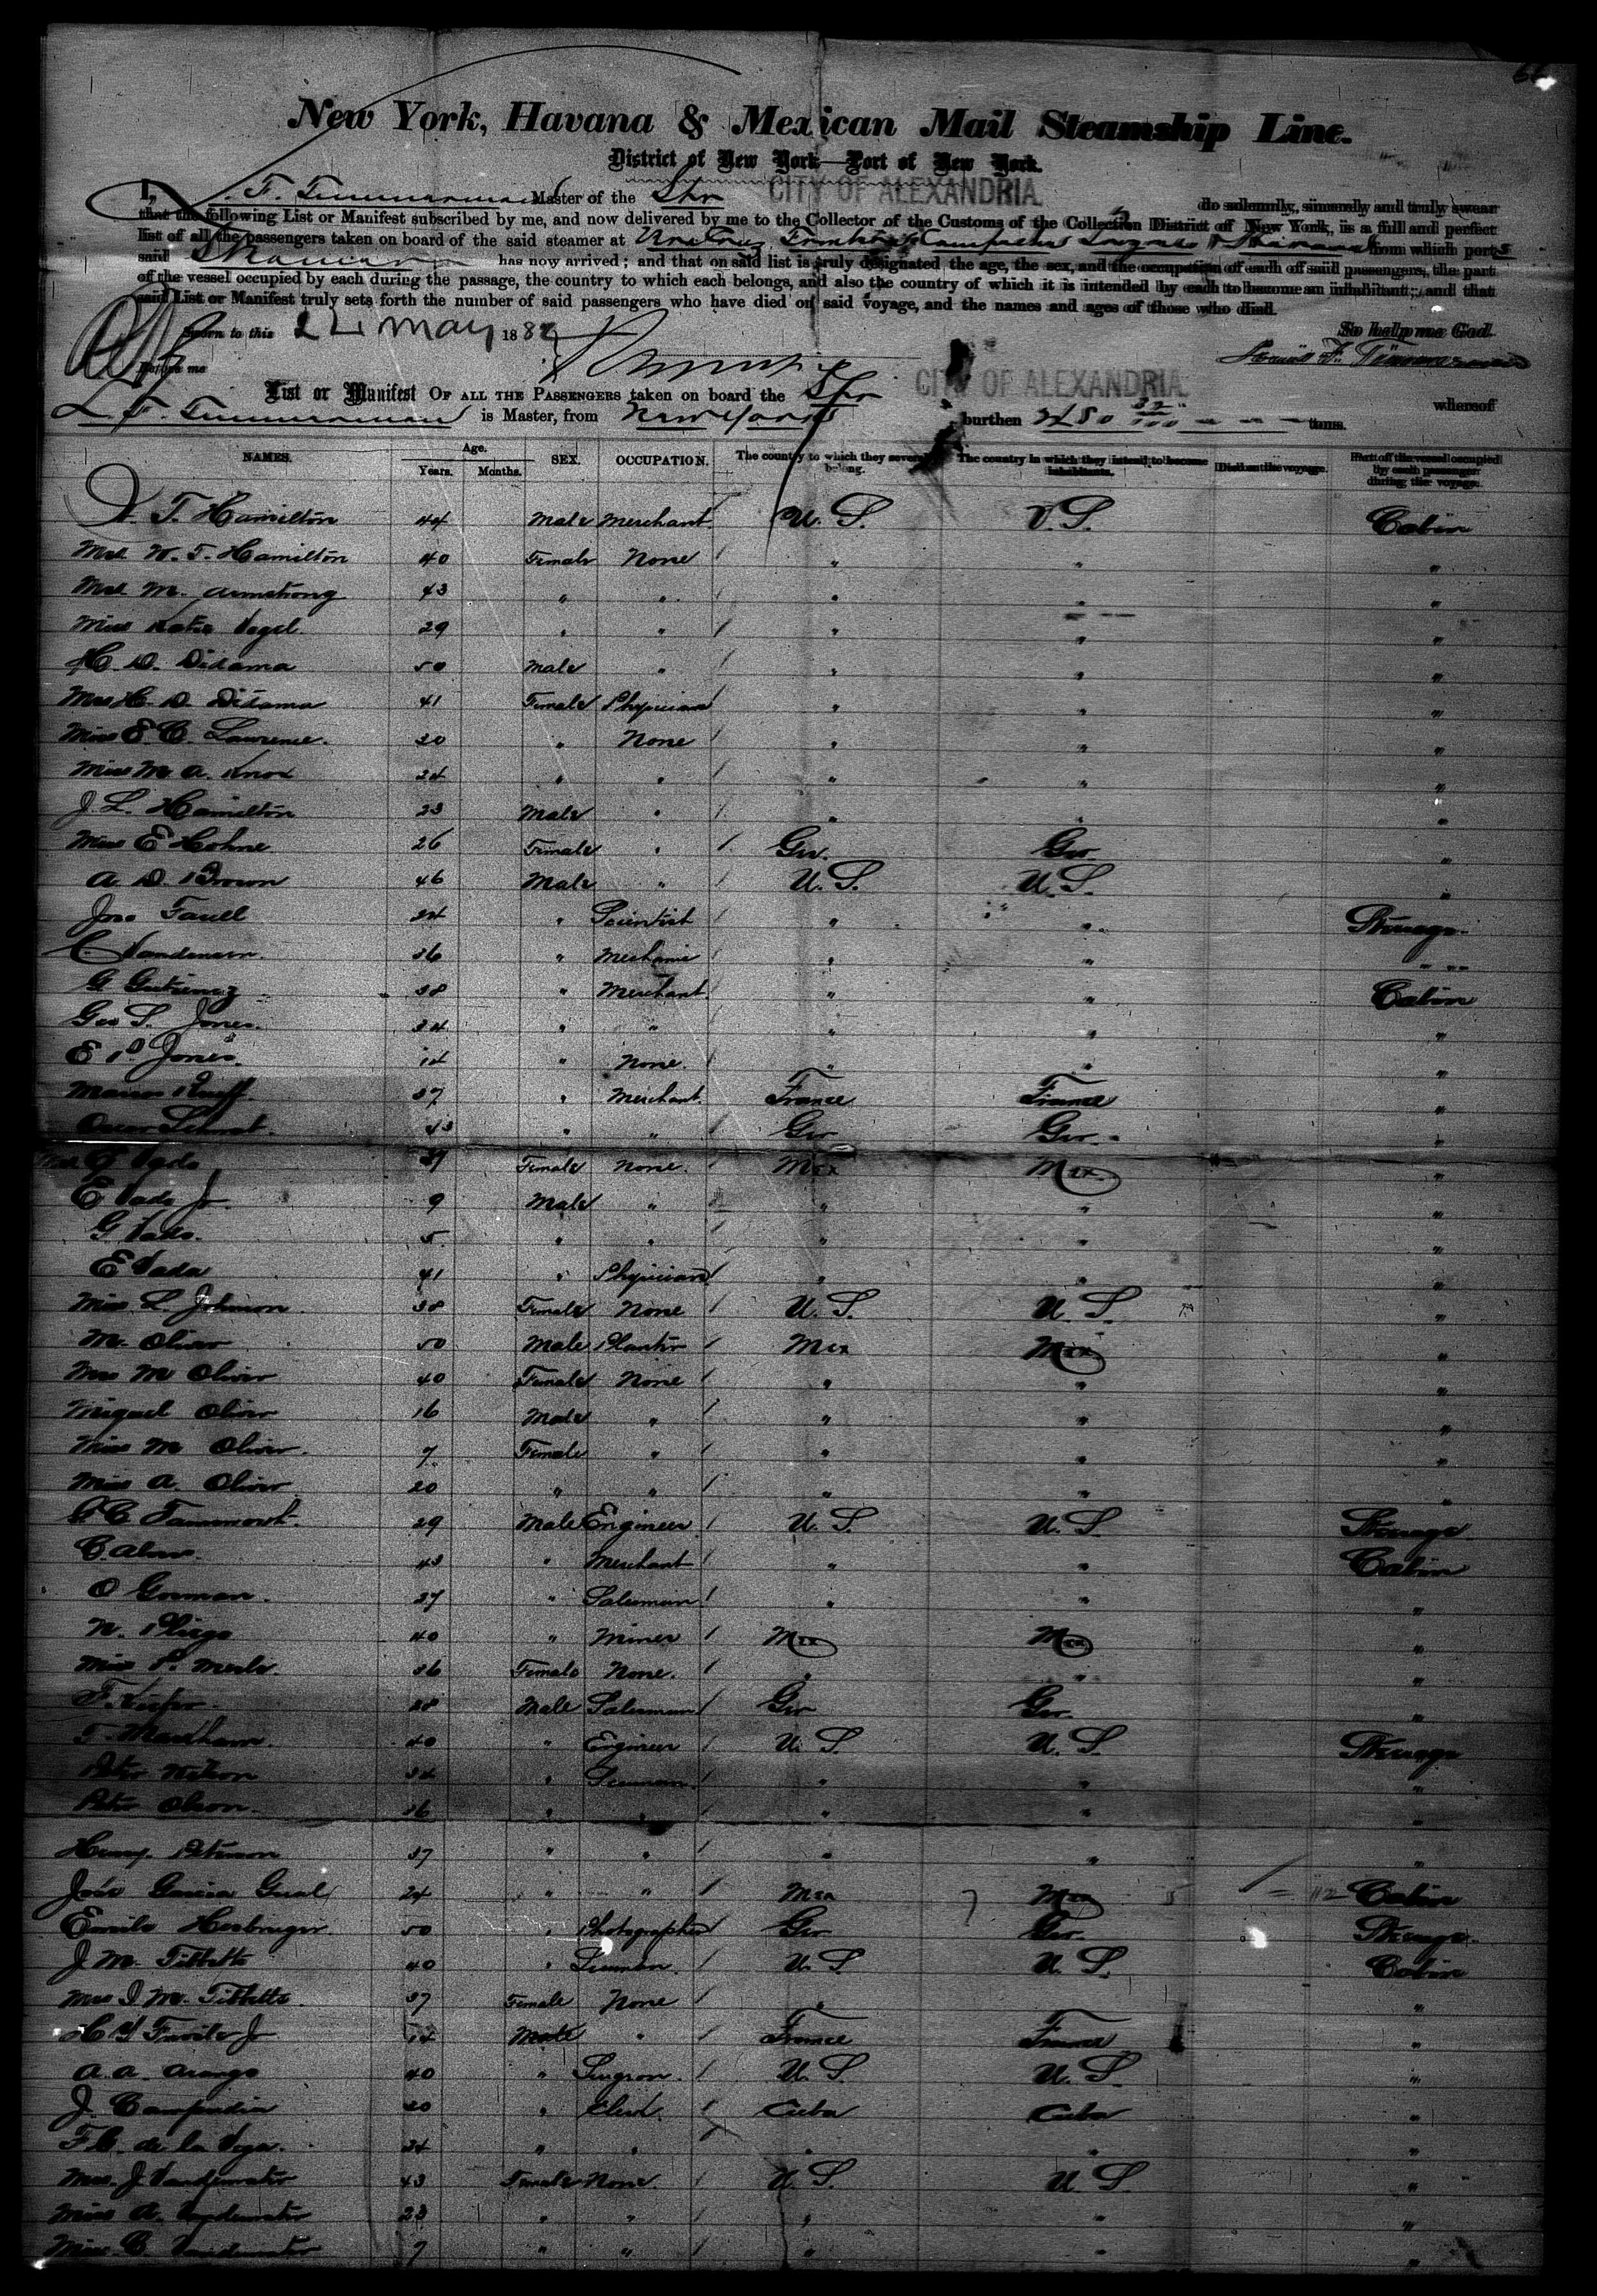 New York, Havana & Mexican Mail Steamship Line.
District of New York—Port of New York.
I, F. Timmerman Master of the Str CITY OF ALEXANDRIA do solemnly, sincerely and truly swear
that the following List or Manifest subscribed by me, and now delivered by me to the Collector of the Customs of the Collection District of New York, is a full and perfect
list of all the passengers taken on board of the said steamer at from which ports
said has now arrived; and that on said list is truly designated the age, the sex, and the occupation of each of said passengers, the part
of the vessel occupied by each during the passage, the country to which each belongs, and also the country of which it is intended by each to become an inhabitant; and that
said List or Manifest truly sets forth the number of said passengers who have died on said voyage, and the names and ages of those who died.
Sworn to this 22 May 188 So help me God.
Before me F. Timmerman
List or Manifest OF ALL THE PASSENGERS taken on board the Str CITY OF ALEXANDRIA whereof
L. F. Timmerman is Master, from New York burthen 2480 tons.
NAMES. Age. Years. Months. SEX. OCCUPATION. The country to which they severally belong. The country in which they intend to become inhabitants. Died on the voyage. Part of the vessel occupied by each passenger during the voyage.
T. Hamilton 44 Male Merchant U. S. U. S. Cabin
Mrs W. T. Hamilton 40 Female None " " "
Mrs M. Armstrong 43 " " " " "
Miss Katie Vogel 29 " " " " "
H. D. Didama 50 Male " " " "
Mrs H. D. Didama 41 Female Physician " " "
Miss E. C. Lawrence 20 " None " " "
Miss M. A. Knox 24 " " " " "
J. L. Hamilton 23 Male " " " "
Miss E Hohne 26 Female " Ger. Ger "
A. D. Brown 46 Male " U. S. U. S. "
Jno. Farell 24 " Scientist " " Steerage
C. Vanderson 36 " Mechanic " " "
G. Gutierrez 38 " Merchant " " Cabin
Geo S. Jones 34 " " " " "
E P. Jones 14 " None " " "
Marcos Rueff 37 " Merchant France France "
Oscar 43 " " Ger Ger "
Mrs E Vada 37 Female None Mex Mex "
E Vada Jr 9 Male " " " "
G Vada 5 " " " " "
E Vada 41 " Physician " " "
Miss L. Johnson 38 Female None U. S. U. S. "
M. Oliver 50 Male Planter Mex Mex "
Mrs M Oliver 40 Female None " " "
Miguel Oliver 16 Male " " " "
Miss M Oliver 7 Female " " " "
Miss A. Oliver 20 " " " " "
G C 29 Male Engineer U. S. U. S. Steerage
C. 43 " Merchant " " Cabin
O Gorman 27 " Salesman " " "
N. Pliego 40 " Miner Mex Mex "
Miss P. 36 Female None " " "
F. 28 Male Salesman Ger Ger "
T. Markham 40 " Engineer U. S. U. S. Steerage
Peter Nelson 34 " Seaman " " "
Peter Olson 36 " " " " "
Henry Peterson 37 " " " " "
José Garcia Gual 24 " " Mex Mex Cabin
Emile Herbruger 50 " Photographer Ger Ger Steerage
J. M. Tibbetts 40 " Seaman U. S. U. S. Cabin
Mrs J. M. Tibbetts 37 Female None " "
H Jr 14 Male " France France "
A. A. Arango 40 " Surgeon U. S. U. S. "
J. 20 " Clerk Cuba Cuba "
F. C. de la Vega 34 " " " " "
Mrs. J. Vandewater 43 Female None U. S. U. S. "
Miss A. Vandewater 23 " " " " "
Miss C. Vandewater 7 " " " " "